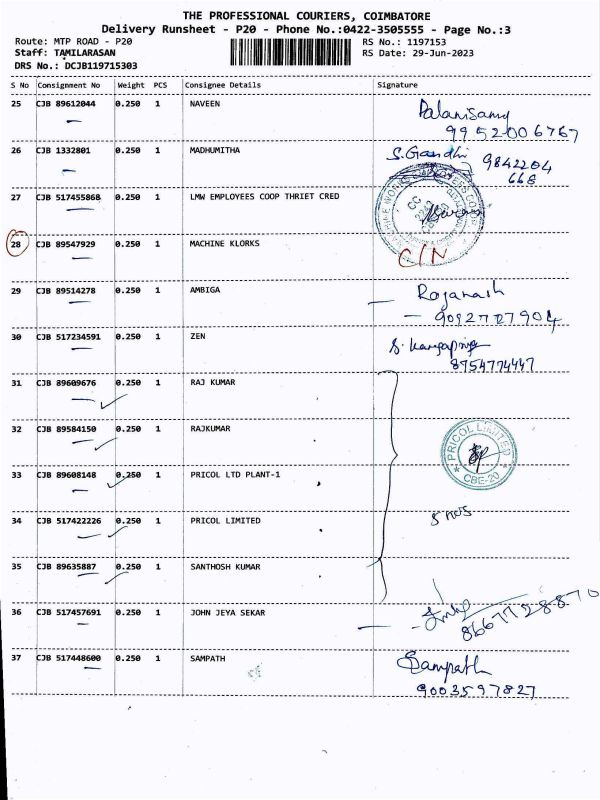 THE PROFESSIONAL COURIERS, COIMBATORE
Delivery Runsheet - P20 - Phone No.:0422-3505555 - Page No.:3
Route: MTP ROAD - P20 RS No.: 1197153
Staff: TAMILARASAN RS Date: 29-Jun-2023
DRS No.: DCJB119715303
S No Consignment No Weight PCS Consignee Details Signature
25 CJB 89612044 0.250 1 NAVEEN Palanisamy
9952006767
26 CJB 1332801 0.250 1 MADHUMITHA S. Gandhi 9842204
668
27 CJB 517455868 0.250 1 LMW EMPLOYEES COOP THRIET CRED
28 CJB 89547929 0.250 1 MACHINE KLORKS C/N
29 CJB 89514278 0.250 1 AMBIGA
9092727904
30 CJB 517234591 0.250 1 ZEN
8754774447
31 CJB 89609676 0.250 1 RAJ KUMAR
32 CJB 89584150 0.250 1 RAJKUMAR PRICOL LIMITED
CBE-20
33 CJB 89608148 0.250 1 PRICOL LTD PLANT-1
34 CJB 517422226 0.250 1 PRICOL LIMITED 5 nos
35 CJB 89635887 0.250 1 SANTHOSH KUMAR
36 CJB 517457691 0.250 1 JOHN JEYA SEKAR 8667728870
37 CJB 517448600 0.250 1 SAMPATH Sampath
9003597827